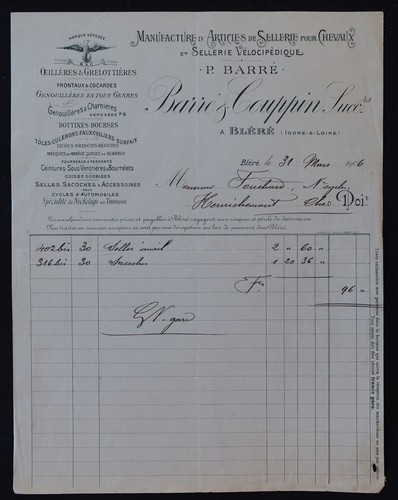 MARQUE DÉPOSÉE
P B
ŒILLÈRES & GRELOTTIÈRES
FRONTAUX & COCARDES
GENOUILLÈRES EN TOUS GENRES
Genouillères à Charnières
DÉPOSÉES P.B
BOTTINES BOURSES
TÔLES CULERONS FAUX-COLLIERS SURFAIX
FOURREAUX & PASSANTS
Ceintures Sous-Ventrières & Bourrelets
GUIDES DOUBLÉES
SELLES SACOCHES & ACCESSOIRES
POUR
CYCLES & AUTOMOBILES
Spécialité de Nickelage au Tonneau
MANUFACTURE D'ARTICLES DE SELLERIE POUR CHEVAUX
ET SELLERIE VÉLOCIPÉDIQUE
P. BARRÉ
Barré & Couppin, Succrs
A BLÉRÉ (INDRE-&-LOIRE)
Bléré, le 31 Mars 1906
Monsieur Fouchard,
Henrichemont Cher Doit
402 bis 30 Selles émail 2 " 60 "
316 bis 30 Sacoches 1 20 36 "
Fs 96 "
GV. gare